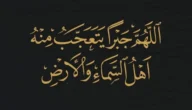 اللَّهُمَّ جَبْرًا يَتَعَجَّبُ مِنْهُ
أَهْلُ السَّمَاءِ وَالْأَرْضِ